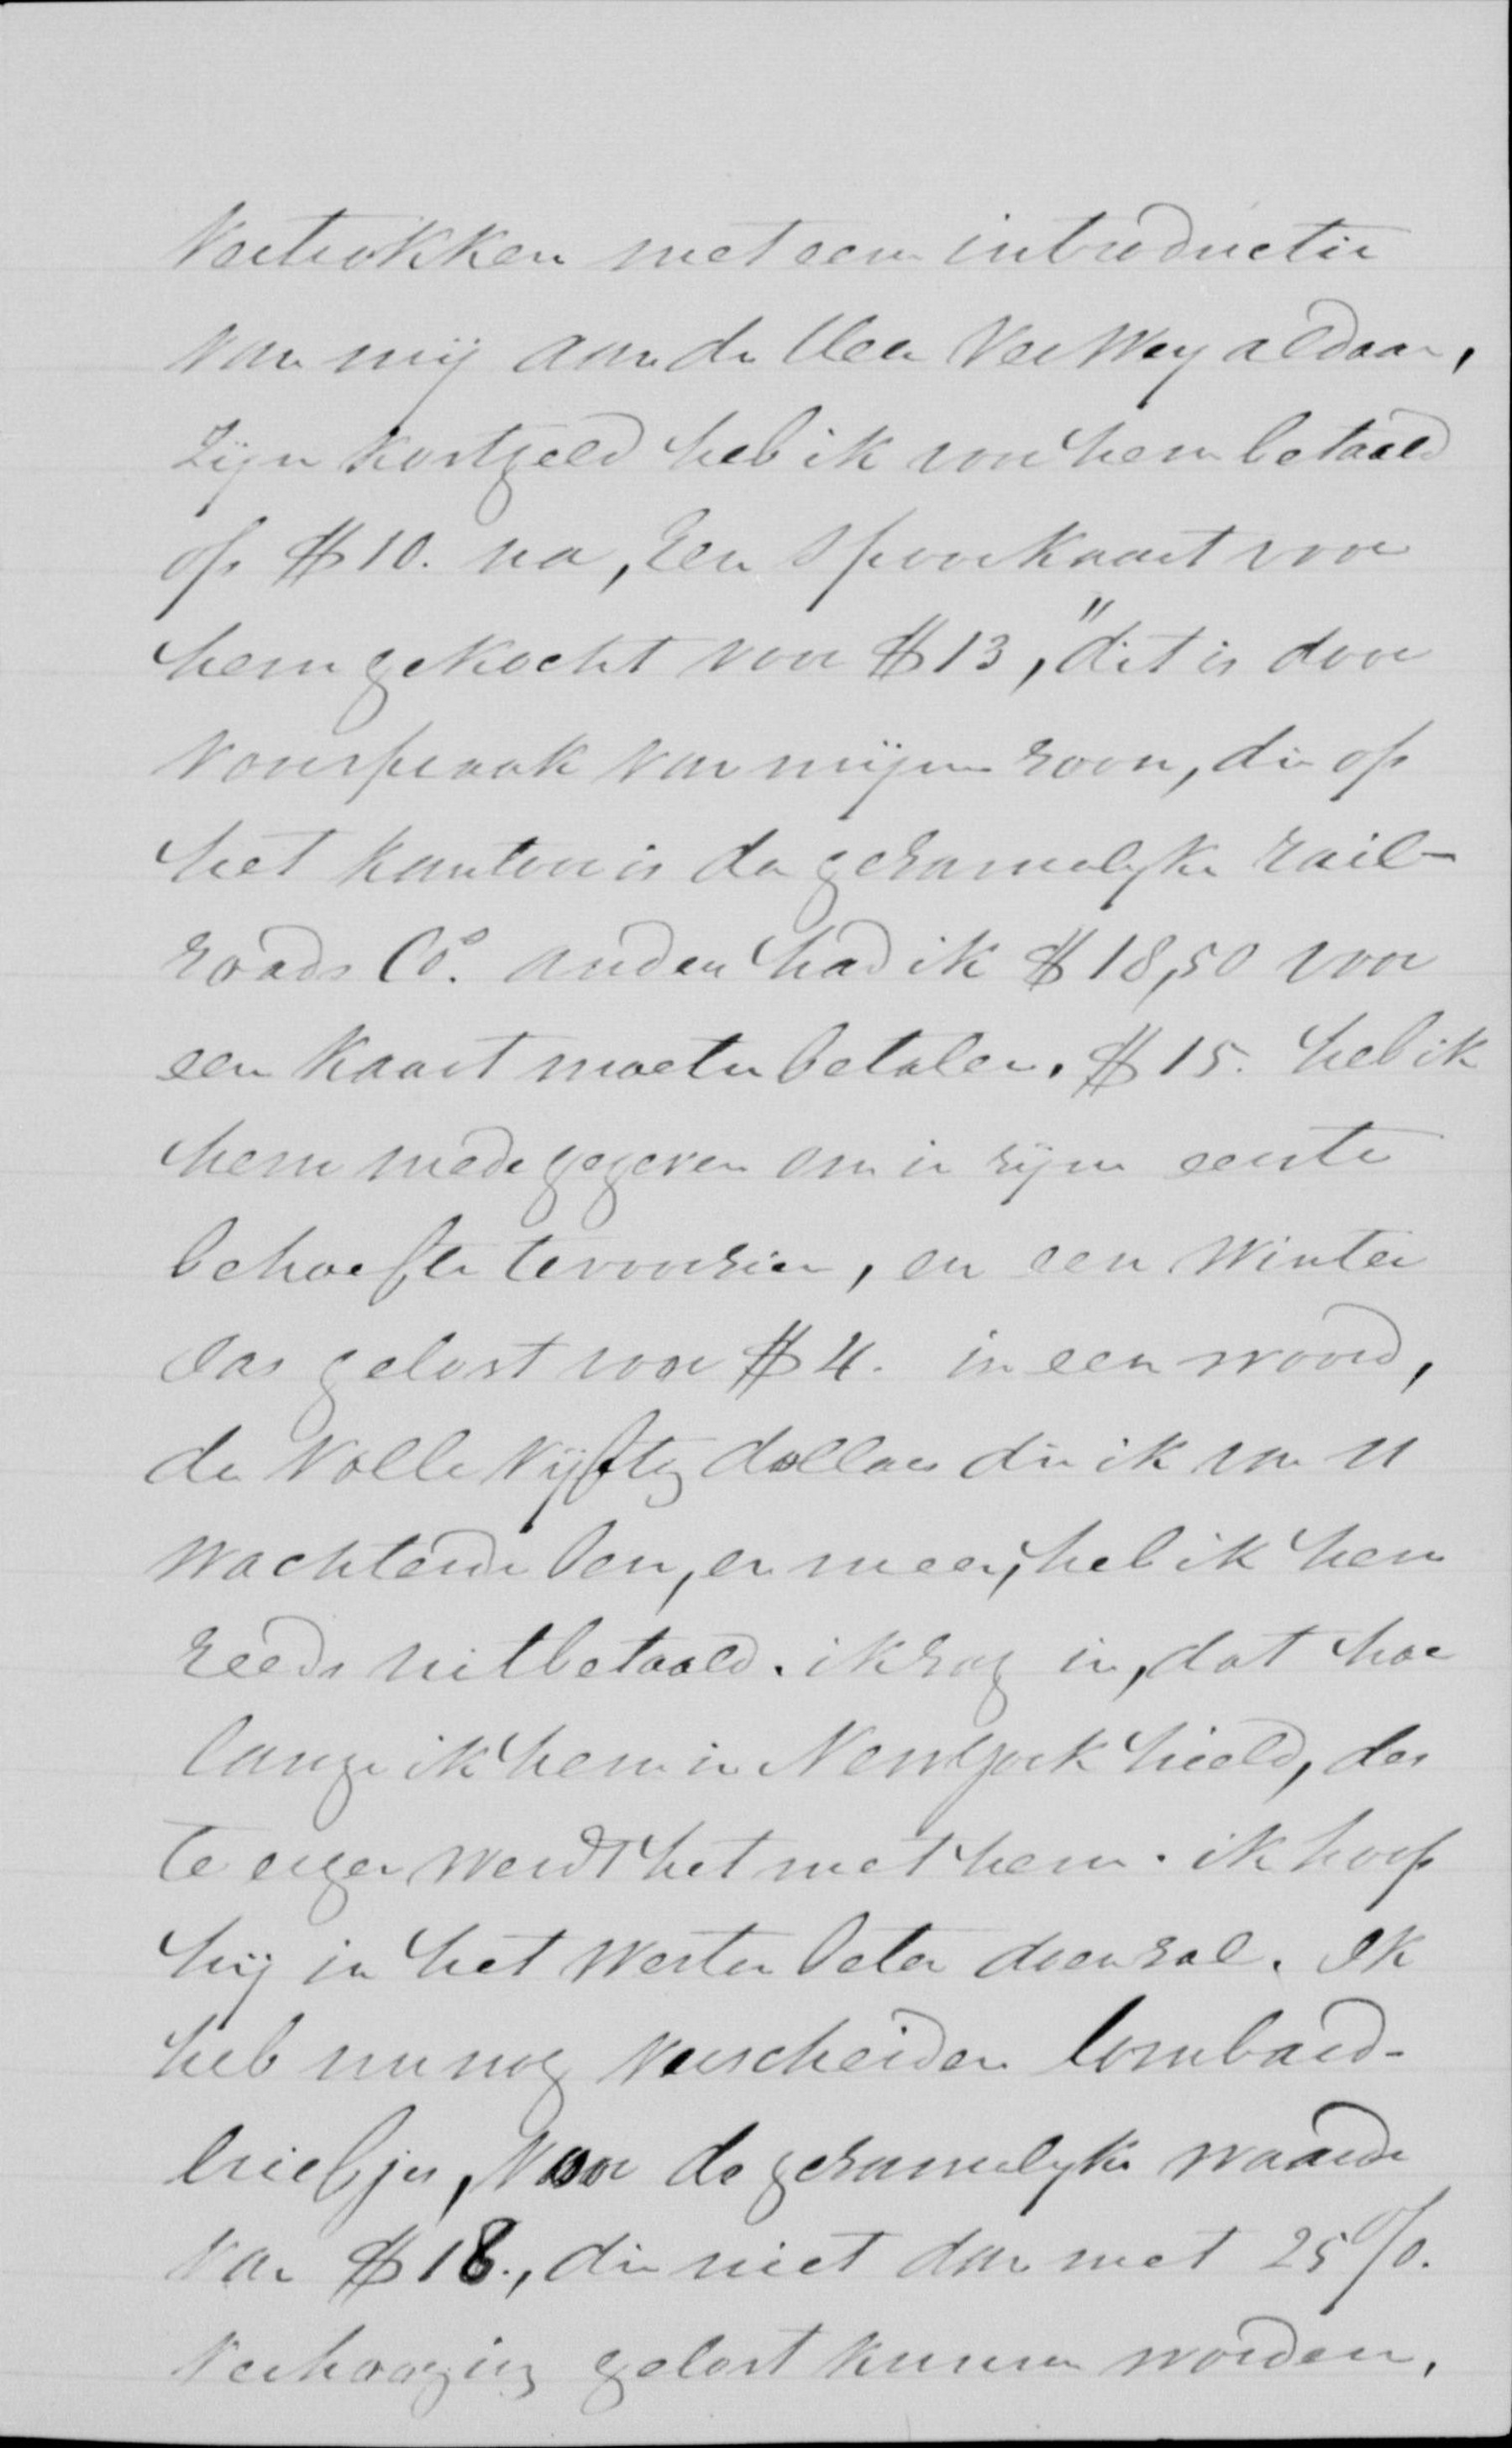 Vertrokken met een introductie
van mij aan de Heer VerWey aldaar,
zijn kostgeld heb ik voor hem betaald
op $10. na, een spoorkaart voor
hem gekocht voor $13," dit is door
voorspraak van mijn zoon, die op
het kantoor is der gezamelyke rail-
roads Co. anders had ik $18,50 voor
een kaart moeten betalen. $15. heb ik
hem mede gegeven om in zijn eerste
behoefte te voorzien, en een winter
jas gelost voor $4. in een woord,
de volle vijftig dollars die ik van U
wachtende ben, en meer, heb ik hem
reeds uitbetaald. ik zag in, dat hoe
lange ik hem in NewYork hield, des
te erger werdt het met hem. ik hoop
hij in het westen beter doen zal. Ik
heb nu nog verscheiden lombard-
briefjes, voor de gezamelyke waarde
van $18., die niet dan met 25%.
verhooging gelost kunnen worden,